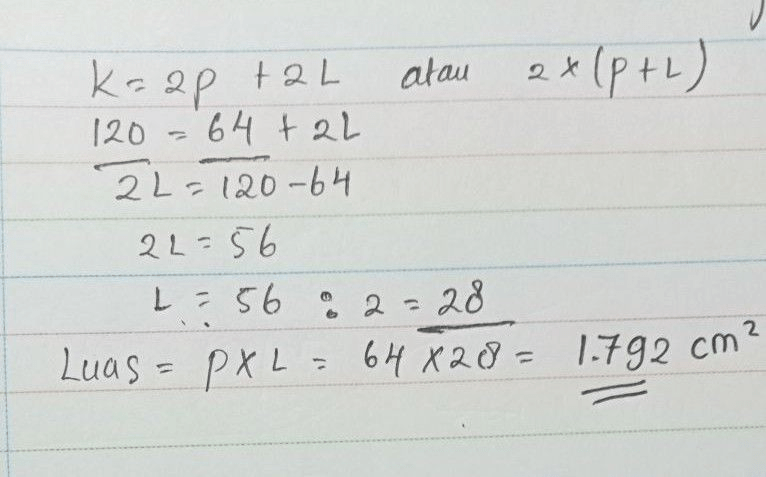 K = 2p + 2L atau 2 x (p + L)
120 = 64 + 2L
2L = 120 - 64
2L = 56
L = 56 : 2 = 28
Luas = p x L = 64 x 28 = 1.792 cm²